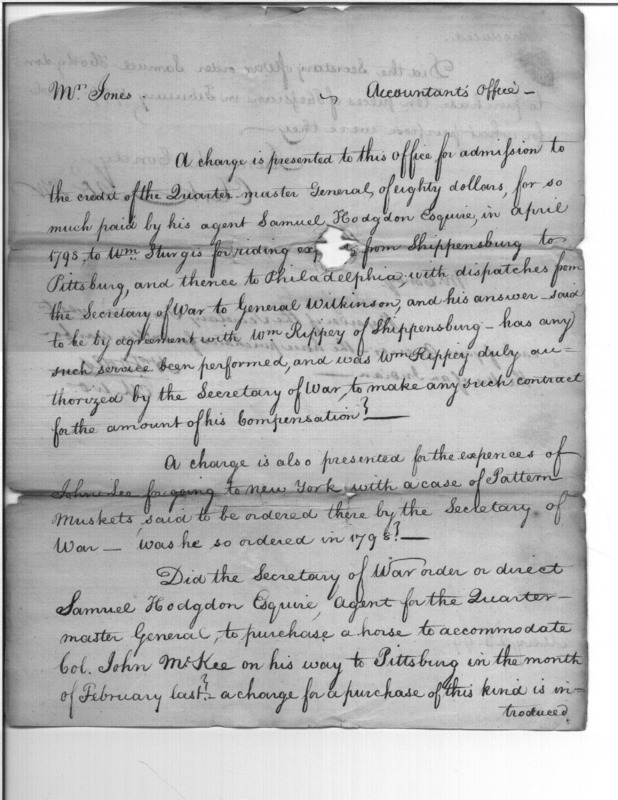 Mr. Jones. ~ Accountant's Office —
A charge is presented to this Office for admission to
the credit of the Quarter master General, of eighty dollars, for so
much paid by his agent Samuel Hodgdon Esquire, in april
1798, to Wm. Sturgis for riding ex from Shippensburg to
Pittsburg, and thence to Philadelphia with dispatches from
the Secretary of War to General Wilkinson, and his answer — said
to be by agreement with Wm Rippey of Shippensburg — has any
such service been performed, and was Wm Rippey duly au=
thorized by the Secretary of War, to make any such contract
for the amount of his Compensation? —
A charge is also presented for the expences of
John Lee for going to new York with a case of Pattern
Muskets, said to be ordered there by the Secretary of
War — was he so ordered in 1798? —
Did the Secretary of War order or direct
Samuel Hodgdon Esquire, Agent for the Quarter-
master General, to purchase a horse to accommodate
Col. John McKee on his way to Pittsburg in the month
of February last? — a charge for a purchase of this kind is in=
troduced.